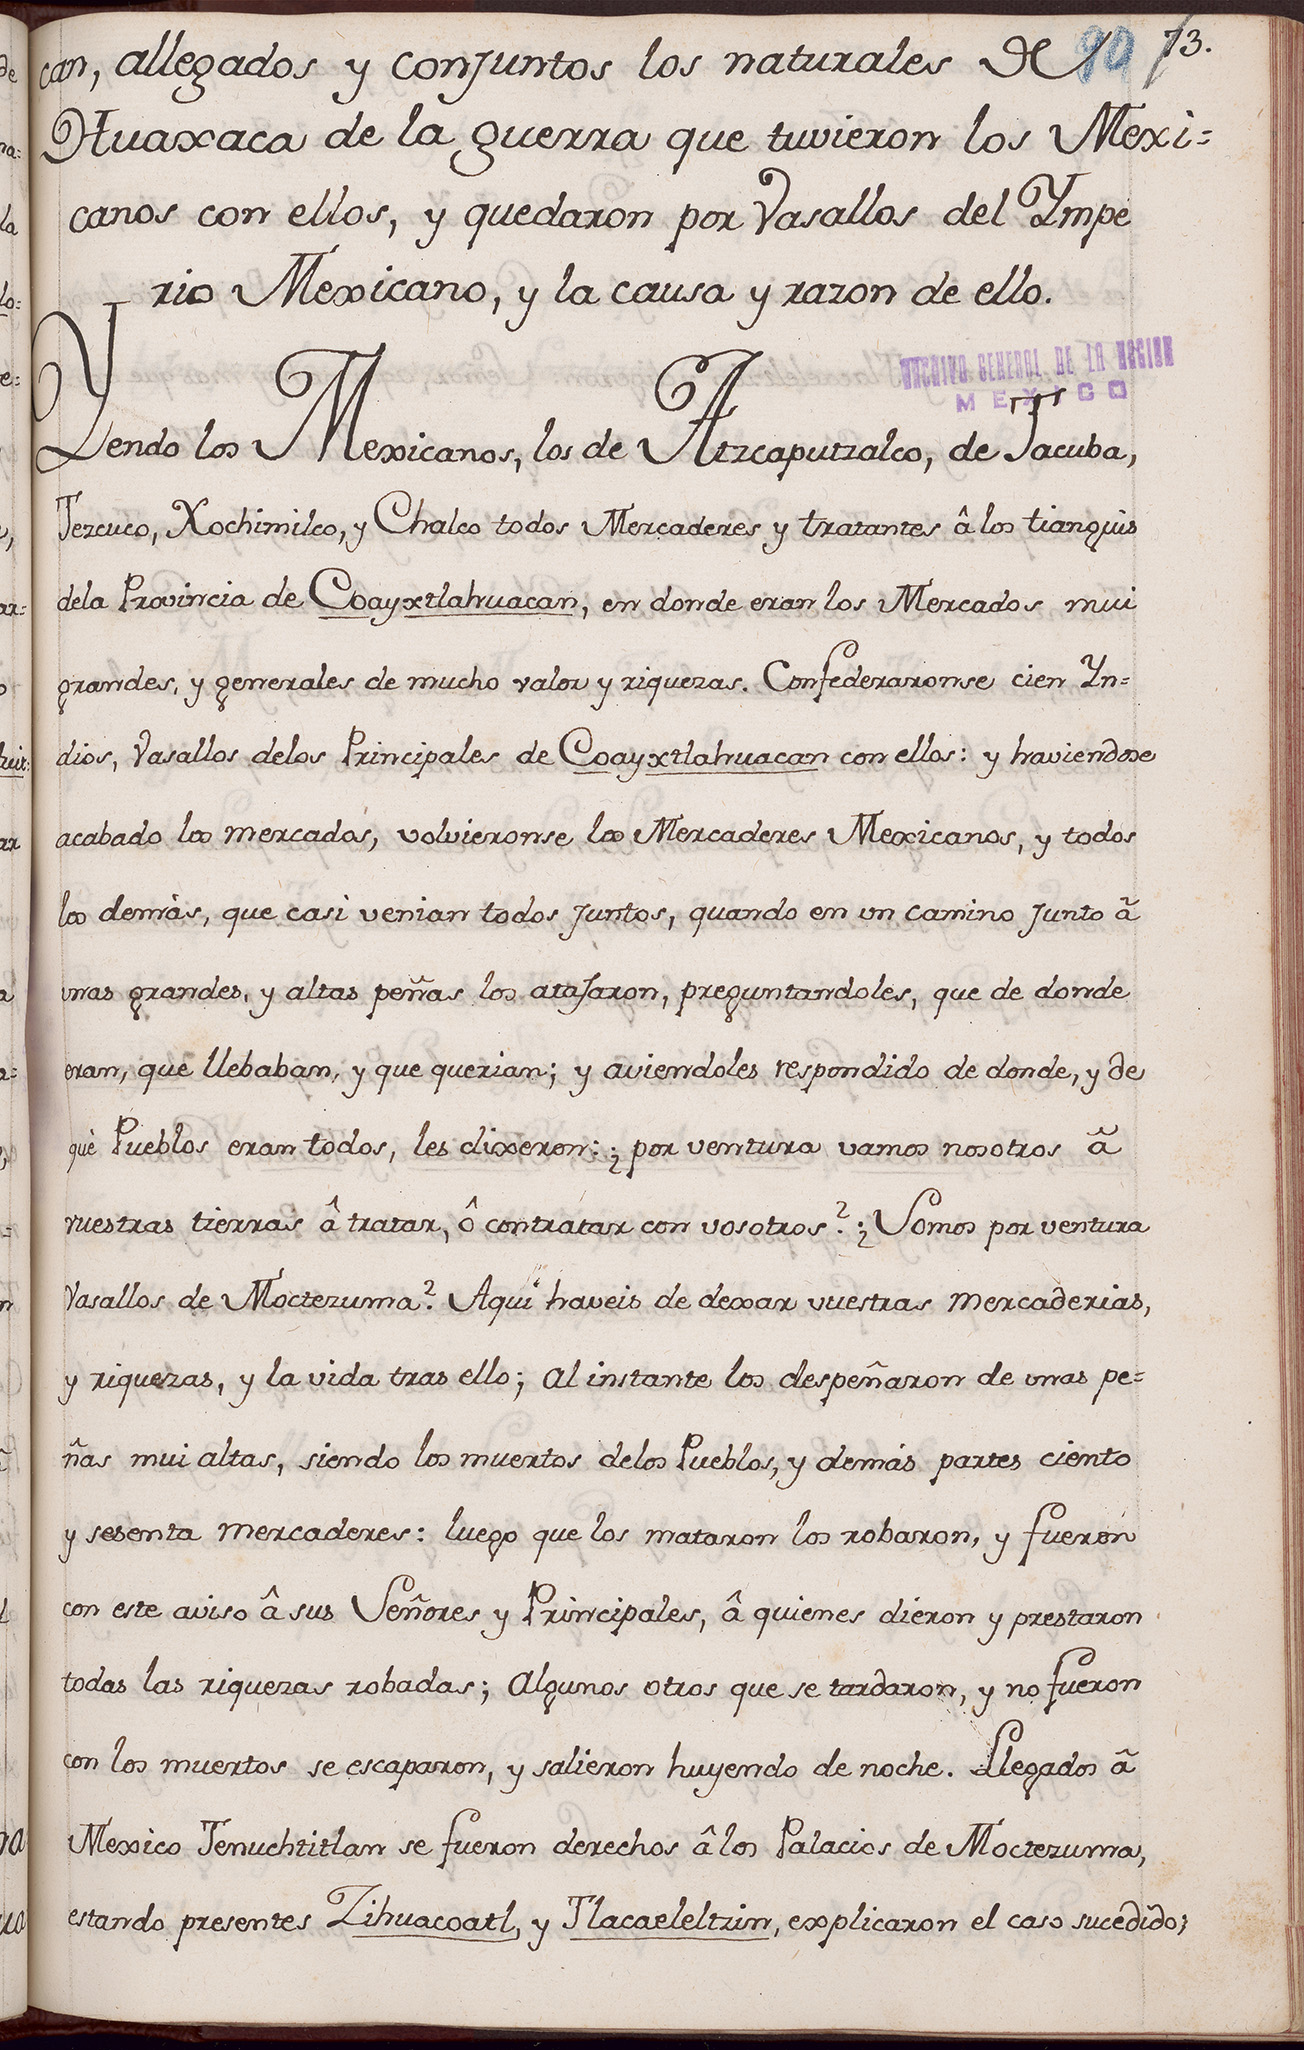 90 73.
can, allegados y conjuntos los naturales de
Huaxaca de la guerra que tuvieron los Mexi=
canos con ellos, y quedaron por Vasallos del Ympe
rio Mexicano, y la causa y razon de ello.
ARCHIVO GENERAL DE LA NACION
MEXICO
Yendo los Mexicanos, los de Atzcaputzalco, de Tacuba,
Tezcuco, Xochimilco, y Chalco todos Mercaderes y tratantes â los tianguis
dela Provincia de Coayxtlahuacan, en donde eran los Mercados mui
grandes, y generales de mucho valor y riquezas. Confederaronse cien Yn=
dios, Vasallos delos Principales de Coayxtlahuacan con ellos: y haviendose
acabado los mercados, volvieronse los Mercaderes Mexicanos, y todos
los demàs, que casi venian todos juntos, quando en un camino junto â
unas grandes, y altas peñas los atajaron, preguntandoles, que de donde
eran, que llebaban, y que querian; y aviendoles respondido de donde, y de
què Pueblos eran todos, les dixeron: ¿por ventura vamos nosotros â
vuestras tierras â tratar, ô contratar con vosotros?: ¿Somos por ventura
Vasallos de Moctezuma? Aqui haveis de dexar vuestras mercaderias,
y riquezas, y la vida tras ello; al instante los despeñaron de unas pe=
ñas mui altas, siendo los muertos delos Pueblos, y demás partes ciento
y sesenta mercaderes: luego que los mataron los robaron, y fueron
con este aviso â sus Señores y Principales, â quienes dieron y prestaron
todas las riquezas robadas; algunos otros que se tardaron, y no fueron
con los muertos se escaparon, y salieron huyendo de noche. Llegados â
Mexico Tenuchtitlan se fueron derechos â los Palacios de Moctezuma,
estando presentes Zihuacoatl, y Tlacaeleltzin, explicaron el caso sucedido;